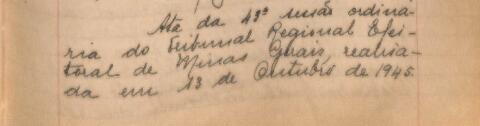 Ata da 43ª sessão ordina-
ria do Tribunal Regional Elei-
toral de Minas Gerais, realisa-
da em 13 de Outubro de 1945.